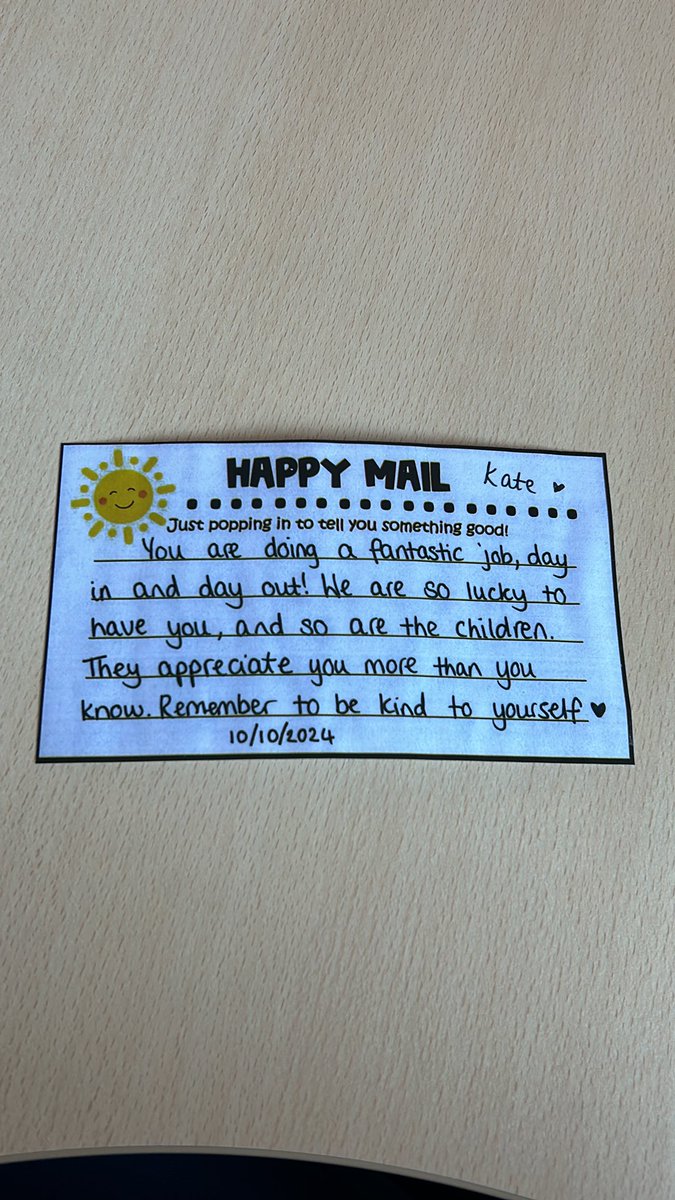 HAPPY MAIL Kate
Just popping in to tell you something good!
You are doing a fantastic job, day
in and day out! We are so lucky to
have you, and so are the children.
They appreciate you more than you
know. Remember to be kind to yourself ♥
10/10/2024